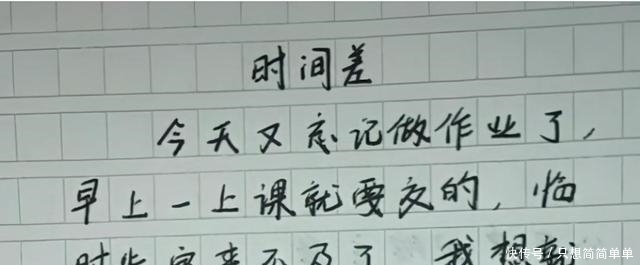 时间差
今天又忘记做作业了，
早上一上课就要交的，临
时些定来不及了 我想
快传号/只想简简单单